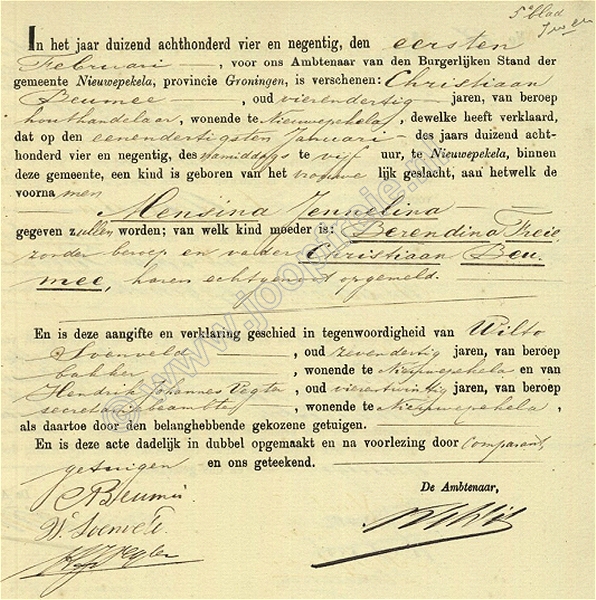 5e blad
In het jaar duizend achthonderd vier en negentig, den eersten
Februari, voor ons Ambtenaar van den Burgerlijken Stand der
gemeente Nieuwepekela, provincie Groningen, is verschenen: Christiaan
Beumee, oud vierendertig jaren, van beroep
houthandelaar, wonende te Nieuwepekela, dewelke heeft verklaard,
dat op den eenendertigsten Januari des jaars duizend acht-
honderd vier en negentig, des namiddags te vijf uur, te Nieuwepekela, binnen
deze gemeente, een kind is geboren van het vrouwelijk geslacht, aan hetwelk de
voornamen
Mensina Jennelina
gegeven zullen worden; van welk kind moeder is: Berendina Freie,
zonder beroep en vader Christiaan Beu-
mee, haren echtgenoot opgemeld.
En is deze aangifte en verklaring geschied in tegenwoordigheid van Wilto
Loenveld, oud zevendertig jaren, van beroep
bakker, wonende te Nieuwepekela en van
Hendrik Johannes Vegter, oud vierentwintig jaren, van beroep
secretariebeambte, wonende te Nieuwepekela,
als daartoe door den belanghebbende gekozene getuigen.
En is deze acte dadelijk in dubbel opgemaakt en na voorlezing door comparant,
getuigen en ons geteekend.
De Ambtenaar,
C Beumee
W. Loenveld
HJ Vegter
© www.joopfreie.nl